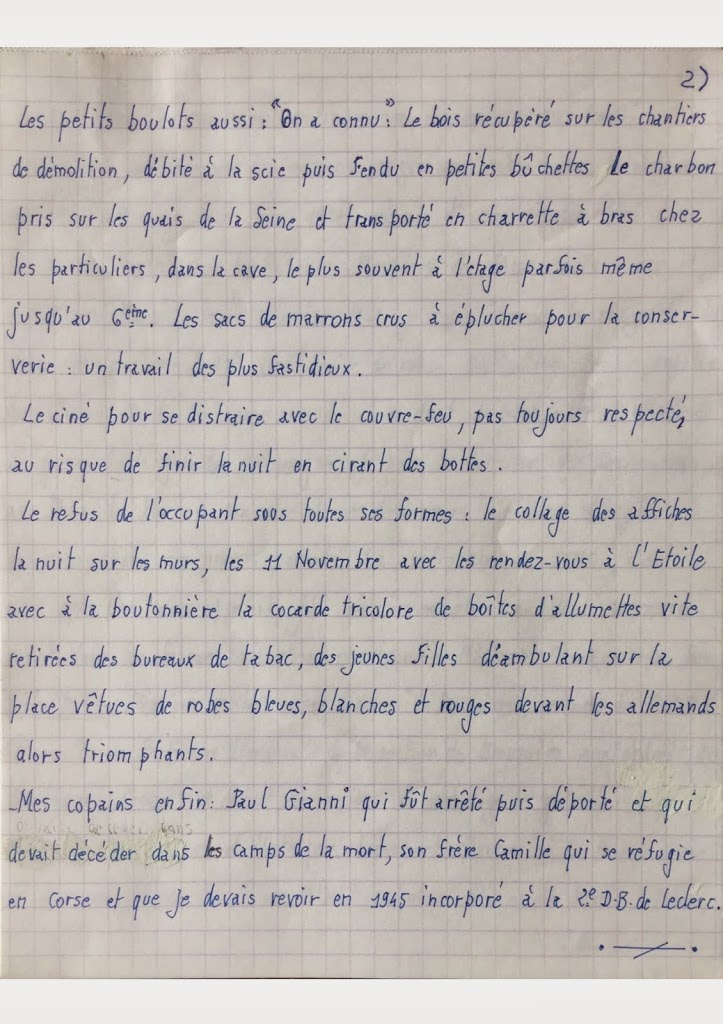 2)
Les petits boulots aussi : "On a connu". Le bois récupéré sur les chantiers
de démolition, débité à la scie puis fendu en petites bûchettes Le charbon
pris sur les quais de la Seine et transporté en charrette à bras chez
les particuliers, dans la cave, le plus souvent à l'étage parfois même
jusqu'au 6ème. Les sacs de marrons crus à éplucher pour la conser-
verie : un travail des plus fastidieux.
Le ciné pour se distraire avec le couvre-feu, pas toujours respecté,
au risque de finir la nuit en cirant des bottes.
Le refus de l'occupant sous toutes ses formes : le collage des affiches
la nuit sur les murs, les 11 Novembre avec les rendez-vous à l'Etoile
avec à la boutonnière la cocarde tricolore de boîtes d'allumettes vite
retirées des bureaux de tabac, des jeunes filles déambulant sur la
place vêtues de robes bleues, blanches et rouges devant les allemands
alors triomphants.
Mes copains enfin : Paul Gianni qui fût arrêté puis déporté et qui
devait décéder dans les camps de la mort, son frère Camille qui se réfugie
en Corse et que je devais revoir en 1945 incorporé à la 2e D.B. de Leclerc.